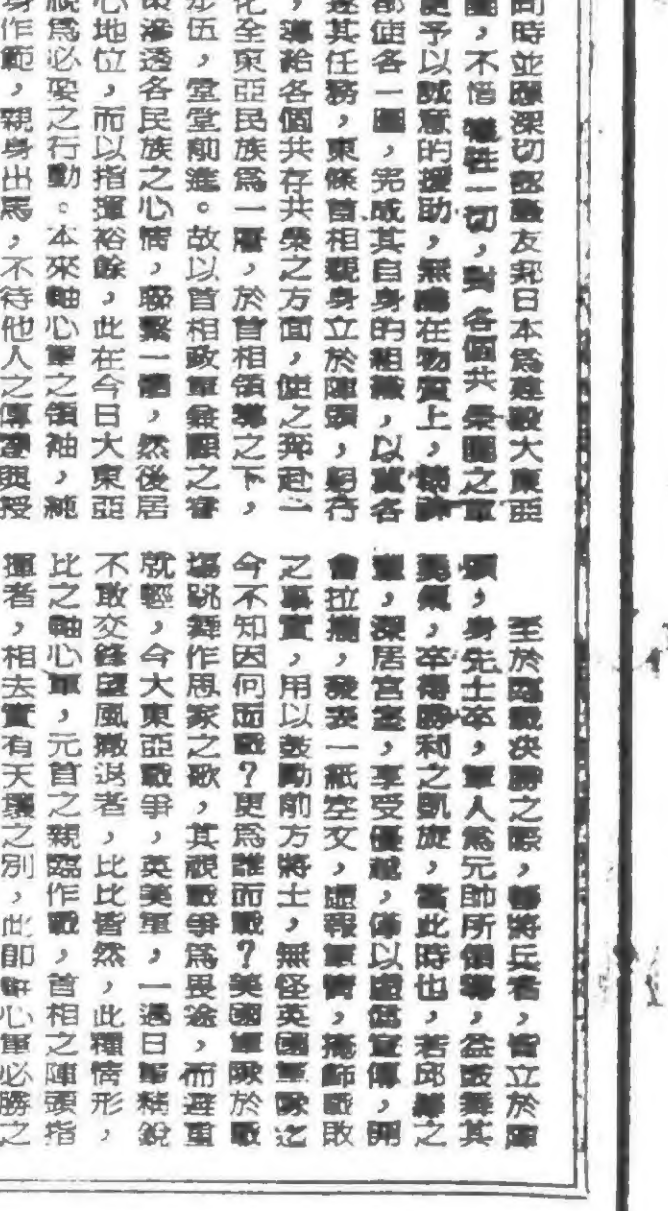 同時並應深切認識友邦日本爲建設大東亞
圈,不惜犧牲一切,對各個共榮圈之
更予以誠意的援助,無論在物質上,
都使各一國,完成其自身的組織,以冀各
遂其任務,東條首相親身立於陣頭,
,導給各個共存共榮之方面,使之奔赴一
化全東亞民族爲一層,於首相領導之下,
形伍,堂堂前進。故以首相政軍兼顧之
策滲透各民族之心情,聯繫一體,然後居
心地位,而以指揮裕餘,此在今日大東亞
視爲必要之行動。本來軸心軍之領袖,純
身作範,親身出馬,不待他人之傳達與授
至於臨戰決勝之際,將兵者,皆立於陣
頭,身先士卒,軍人爲元帥所領導,益鼓舞其
勇氣,卒得勝利之凱旋,當此時也,若邱之
,深居宮室,享受優越,僅以虛僞宣傳,開
會拉攏,發表一紙空文,虛報軍情,掩飾戰敗
之事實,用以鼓勵前方將士,無怪英國軍隊迄
今不知因何而戰?更爲誰而戰?美國軍隊於戰
場跳舞作思家之歌,其視戰爭爲畏途,而避重
就輕,今大東亞戰爭,英美軍,一遇日軍精銳
不敢交鋒望風撤退者,比比皆然,此種情形,
比之軸心軍,元首之親臨作戰,首相之陣頭指
揮者,相去實有天壤之別,此即軸心軍必勝之